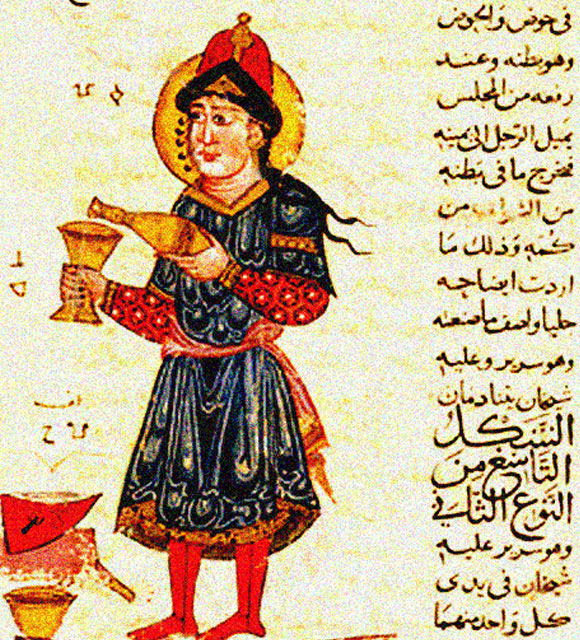 في حوض والحوض
وهو بطنه وعند
رفعه من المجلس
يميل الرجل الى يمينه
فيخرج ما في بطنه
من الشراب من
كمه وذلك ما
اردت ايضاحه
جليا واصف ما صنعته
وهو سرير وعليه
شيخان يتنادمان
الشكل
التاسع من
النوع الثاني
وهو سرير عليه
شيخان في يدي
كل واحد منهما